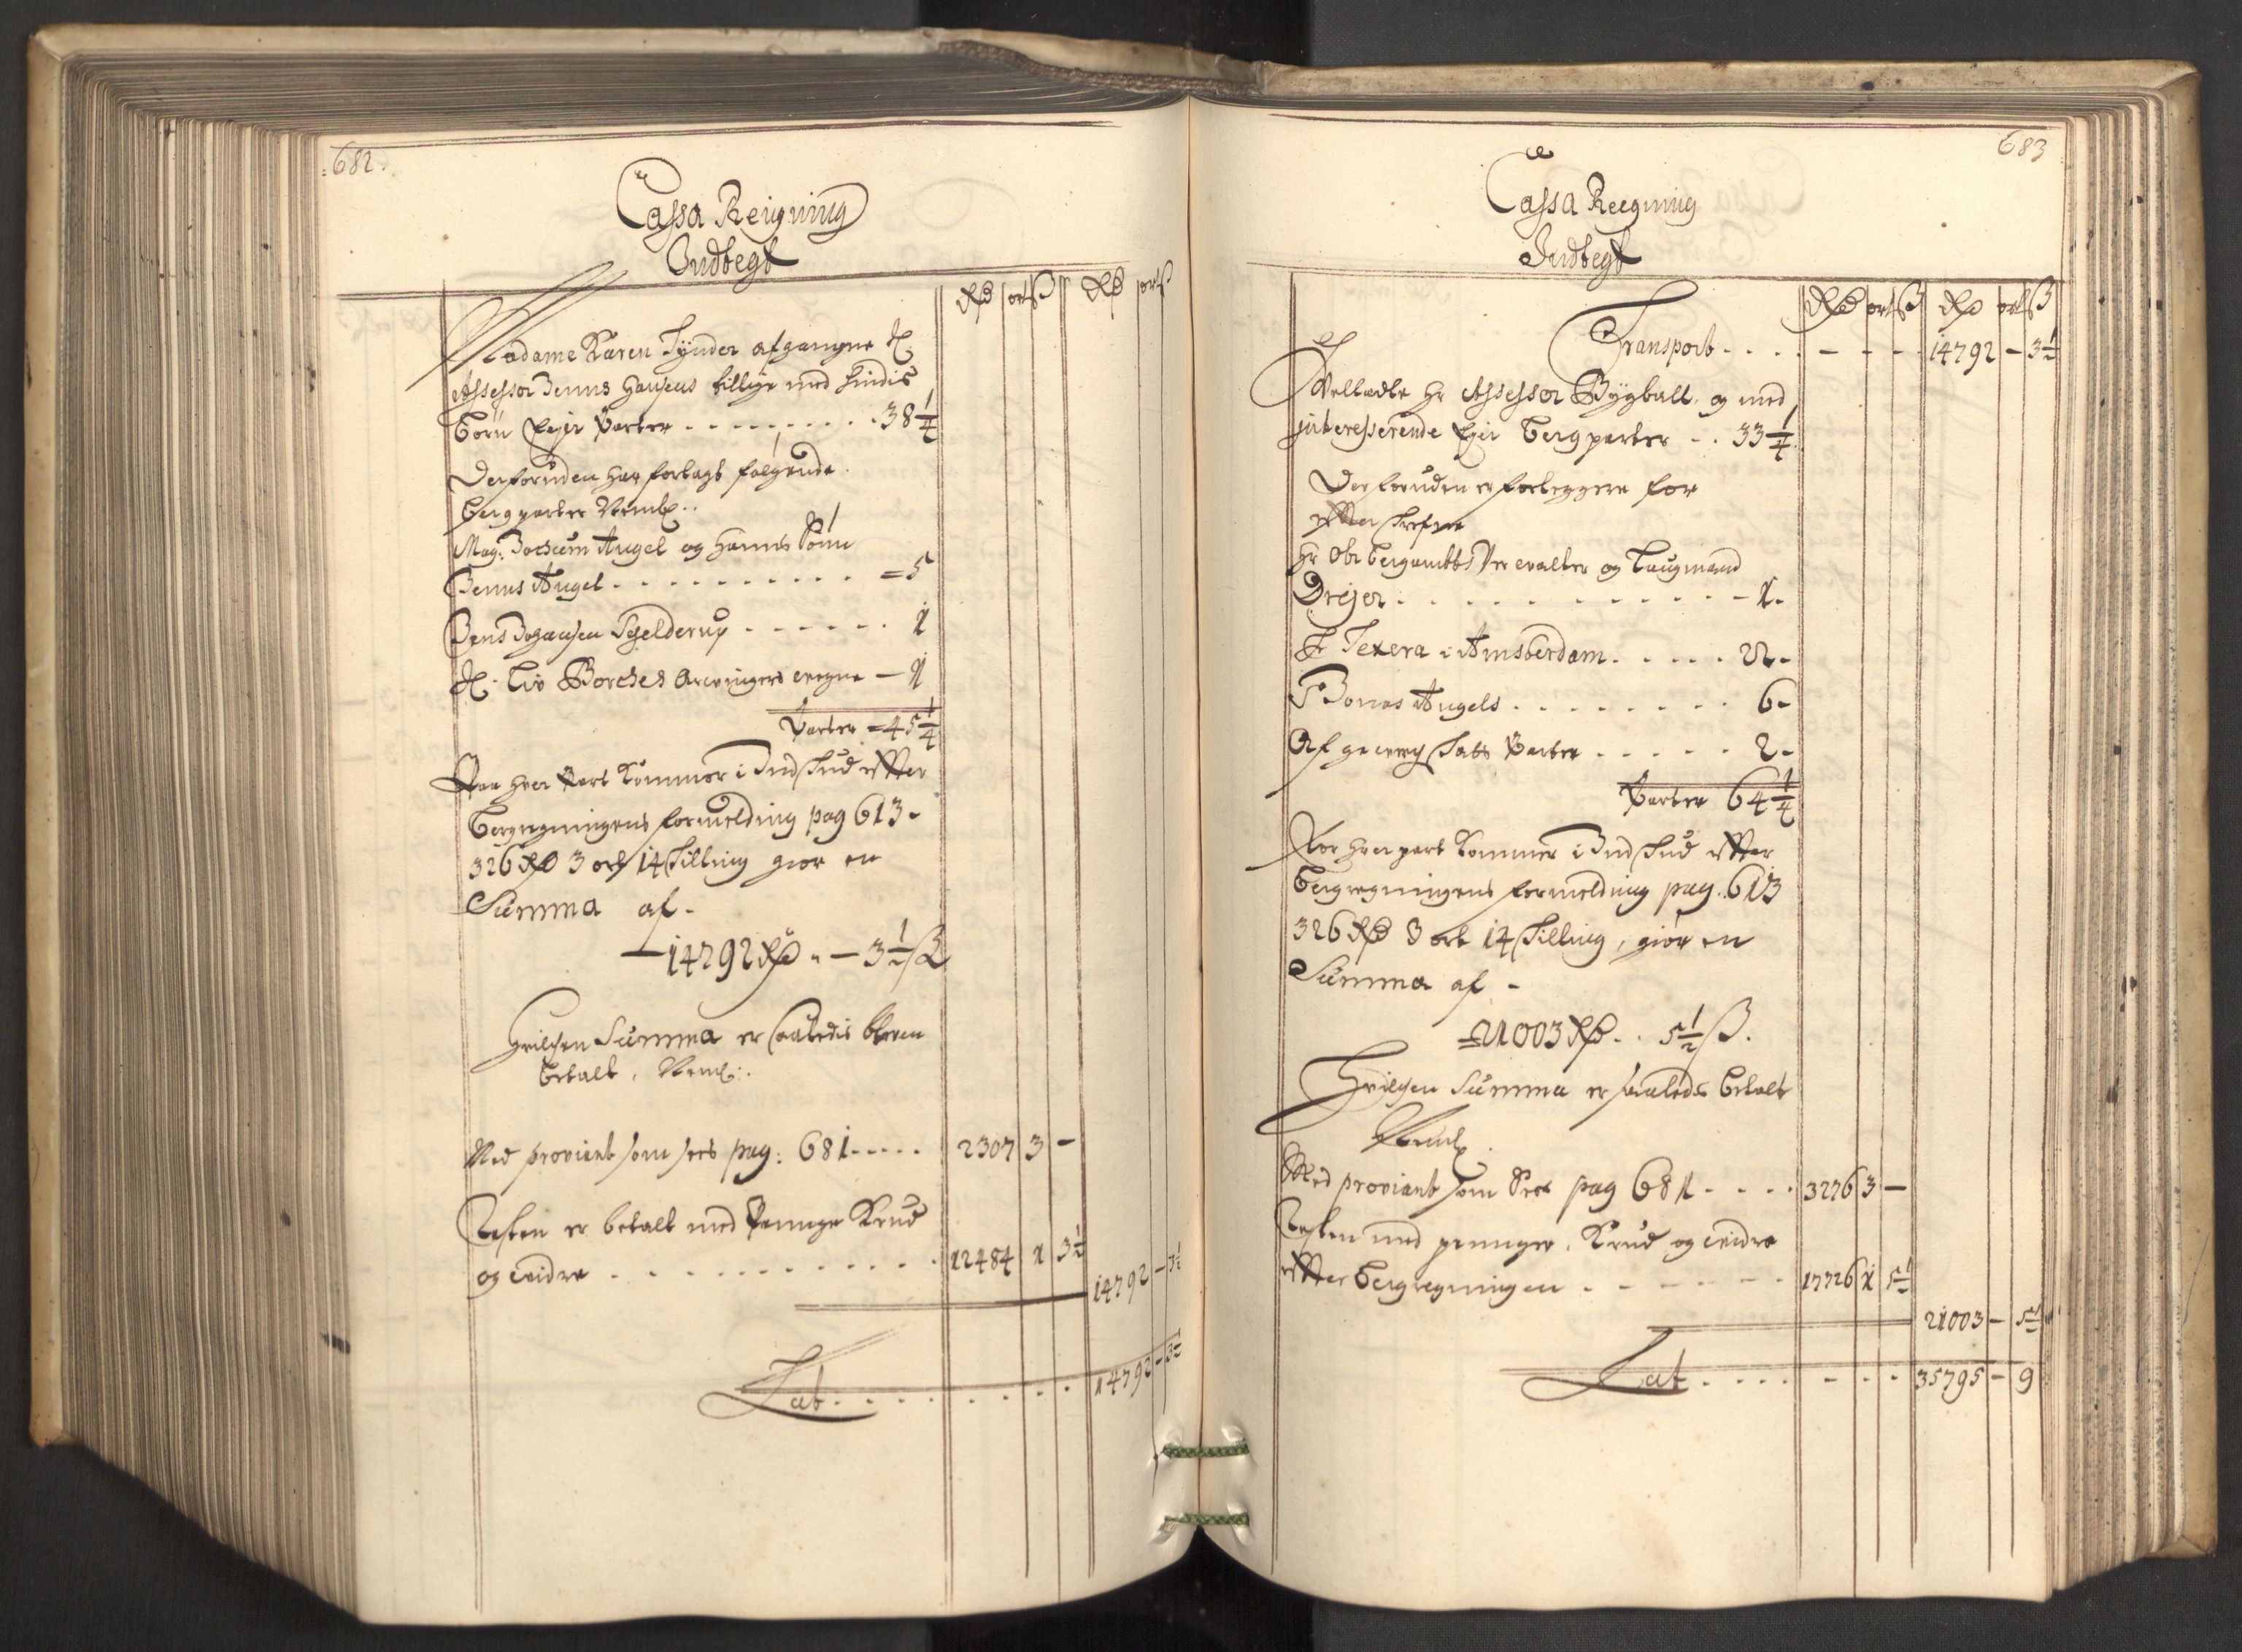 682.
Cassa Reigning
Indtegt
Rdr ort ß Rdr ort ß
Madame Karen Tynder afgangne Sl.
Assessor Jenns Hansens tillige med hindis
Børn Ejer Parter - - - - 38 1/4
Derforuden har forlagt følgende
Bergparter Neml:
Mag: Jochum Angel og Hanns Sønn
Jenns Angel - - - - = 5
Jens Johansen Schjelderup - - - - 1
Sl: Liv Borches Arvingers egne — 1
Parter = 45 1/4
Paa hver Part kommer i Indskud efter
Bergregningens formelding pag 613 -
326 Rdr 3 ort 14 skilling giør en
Summa af -
— 14792 Rdr „ — 3 1/2 ß
Hvilchen Summa er saaledis bleven
betalt, Neml:
Med proviant som sees pag: 681 - - - - 2307 3 —
Resten er betalt med Penninge Krud
og videre - - - - 12484 1 3 1/2
14792 — 3 1/2
Lat. - - - - 14792 — 3 1/2
683
Cassa Reegning
Indtegt
Rdr ort ß Rdr ort ß
Transport - - - - 14792 — 3 1/2
Velædle Hr Assessor Bygball og med
interesserende Ejer Bergparter - - 33 1/4
Derforuden er forleggere for
efterskrefne
Hr Ober Bergambts Verevalter og Laugmand
Drejer - - - - 1 -
Hr Texera i Amsterdam - - - - 22 -
Sr Jonas Angels - - - - 6 -
Parter - - - - 2 -
Parter 64 1/4
For hver part kommer i Indskud efter
Bergregningens formelding pag. 613
326 Rdr 3 ort 14 skilling, giør en
Summa af -
= 21003 Rdr - - 5 1/2 ß.
Hvilchen Summa er saaledes betalt
Neml
Med proviant som Sees pag 681 - - - - 3276 3 —
Resten med penninger, Krud og videre
efter Bergregningen - - - - 17726 1 5 1/2
21003 — 5 1/2
Lat - - - - 35795 — 9